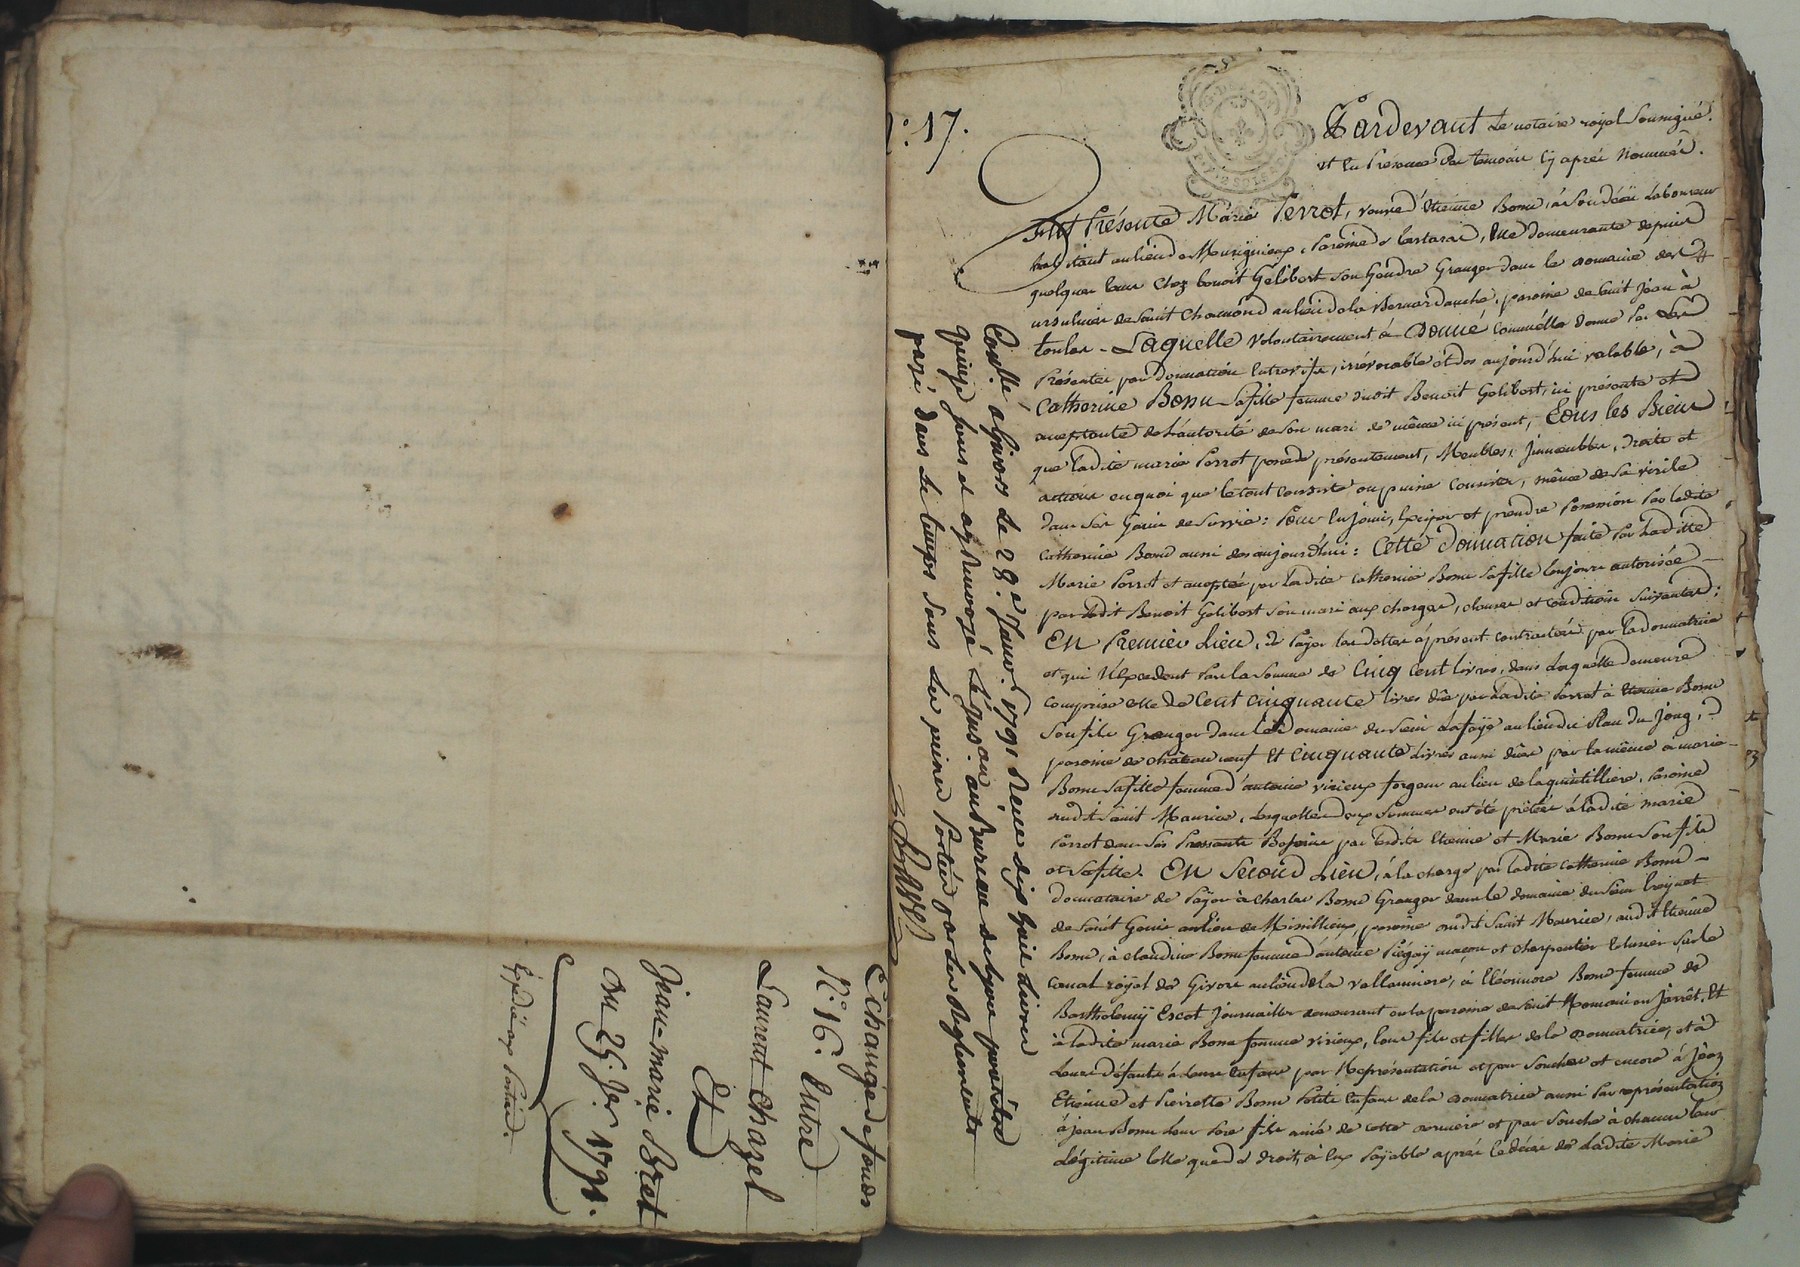 Echange de fonds
N.° 16. Entre
Laurent Chazel
Et
Jean-marie Bret
Du 25. Jer. 1791.
Expédié aux Parties.
N.° 17.
Pardevant Le notaire royal Soussigné.
et En Presence des temoins cy aprés Nommés.
Fut Présente Marie Perrot, veuve d'Etienne Bonu, à Son décès Laboureur
habitant au lieu de Mourignieux, Paroisse de tartaras, Elle demeurante depuis
quelques tems Chez benoit Gelibert Son Gendre Granger dans le domaine des
ursulines de Saint Chamond au lieu de la Bernardanche, paroisse de Saint Jean à
toulas - Laquelle volontairement à Donné comme elle donne Par Les
Présentes par Donnation Entrevifs, irrévocable et des aujourd'hui valable, à
Catherine Bonu Sa fille femme dudit Benoit Gelibert, ici présente et
acceptante de l'autorité de Son mari de même ici présent, Tous les Biens
que ladite marie Perrot possede présentement, Meubles, Immeubles, droits et
actions en quoi que le tout consiste ou puisse consister, même de Sa virile
dans Ses Gains de Survie: Pour En Jouir, Exiger et prendre Possession Par ladite
Catherine Bonu aussi des aujourd'hui: Cette Donnation faite Par Ladite
Marie Perrot et acceptée par ladite Catherine Bonu Sa fille toujours autorisée
par ledit Benoit Gelibert Son mari aux charges, clauses et conditions Suivantes:
En Premier Lieu, de Payer les dettes à présent contractées par la donnatrice
et qui N'Excedent Pas la Somme de Cinq Cent livres, dans Laquelle demeure
comprise celle de Cent cinquante livres düe par ladite Perrot à Etienne Bonu
Son fils Granger dans le Domaine du Sieur Lafaÿe au lieu du Plan du Jong,
paroisse de Chateau neuf Et Cinquante Livres aussi düe par la même à marie
Bonu Sa fille femme d'antoine virieux forgeur au lieu de la quintilliere, Paroisse
dudit Saint Maurice, Lesquelles deux Sommes ont été prêtées à ladite marie
Perrot dans Ses Pressants Besoins par lesdits Etienne et Marie Bonu Son fils
et Sa fille. En Second Lieu, à la charge par ladite Catherine Bonu
donnataire de Payer à Charles Bonu Granger dans le domaine du Sieur
de Saint Genis au Lieu de Mimillieux, paroisse dudit Saint Maurice, audit Etienne
Bonu, à claudine Bonu femme d'antoine Piégaÿ maçon et charpentier Eclusier Sur le
canal royal de Givors au lieu de la vallanniere, à Eléonnore Bonu femme de
Barthelemÿ Escot Journaillier demeurant en la paroisse de Saint Romain en Jarrêt, Et
à ladite marie Bonu femme virieux, tous fils et filles de la donnatrice, et à
Leurs défauts à Leurs Enfans par Représentation et par Souches et encore à Jean
Etienne et Pierrette Bonu Petits Enfans de la donnatrice aussi Par représentation
à jean Bonu Leur Pere fils ainé de cette derniere et par Souche à chacun leur
Légitime telle que de droit, à Eux Payable aprés le décès de Ladite Marie
Contllé à Givors Le 28.e Janv. 1791 Reçu dix huit Livres
quinze sous et ay Renvoyé
payé dans le tems Sous les peines Portées par les Reglements